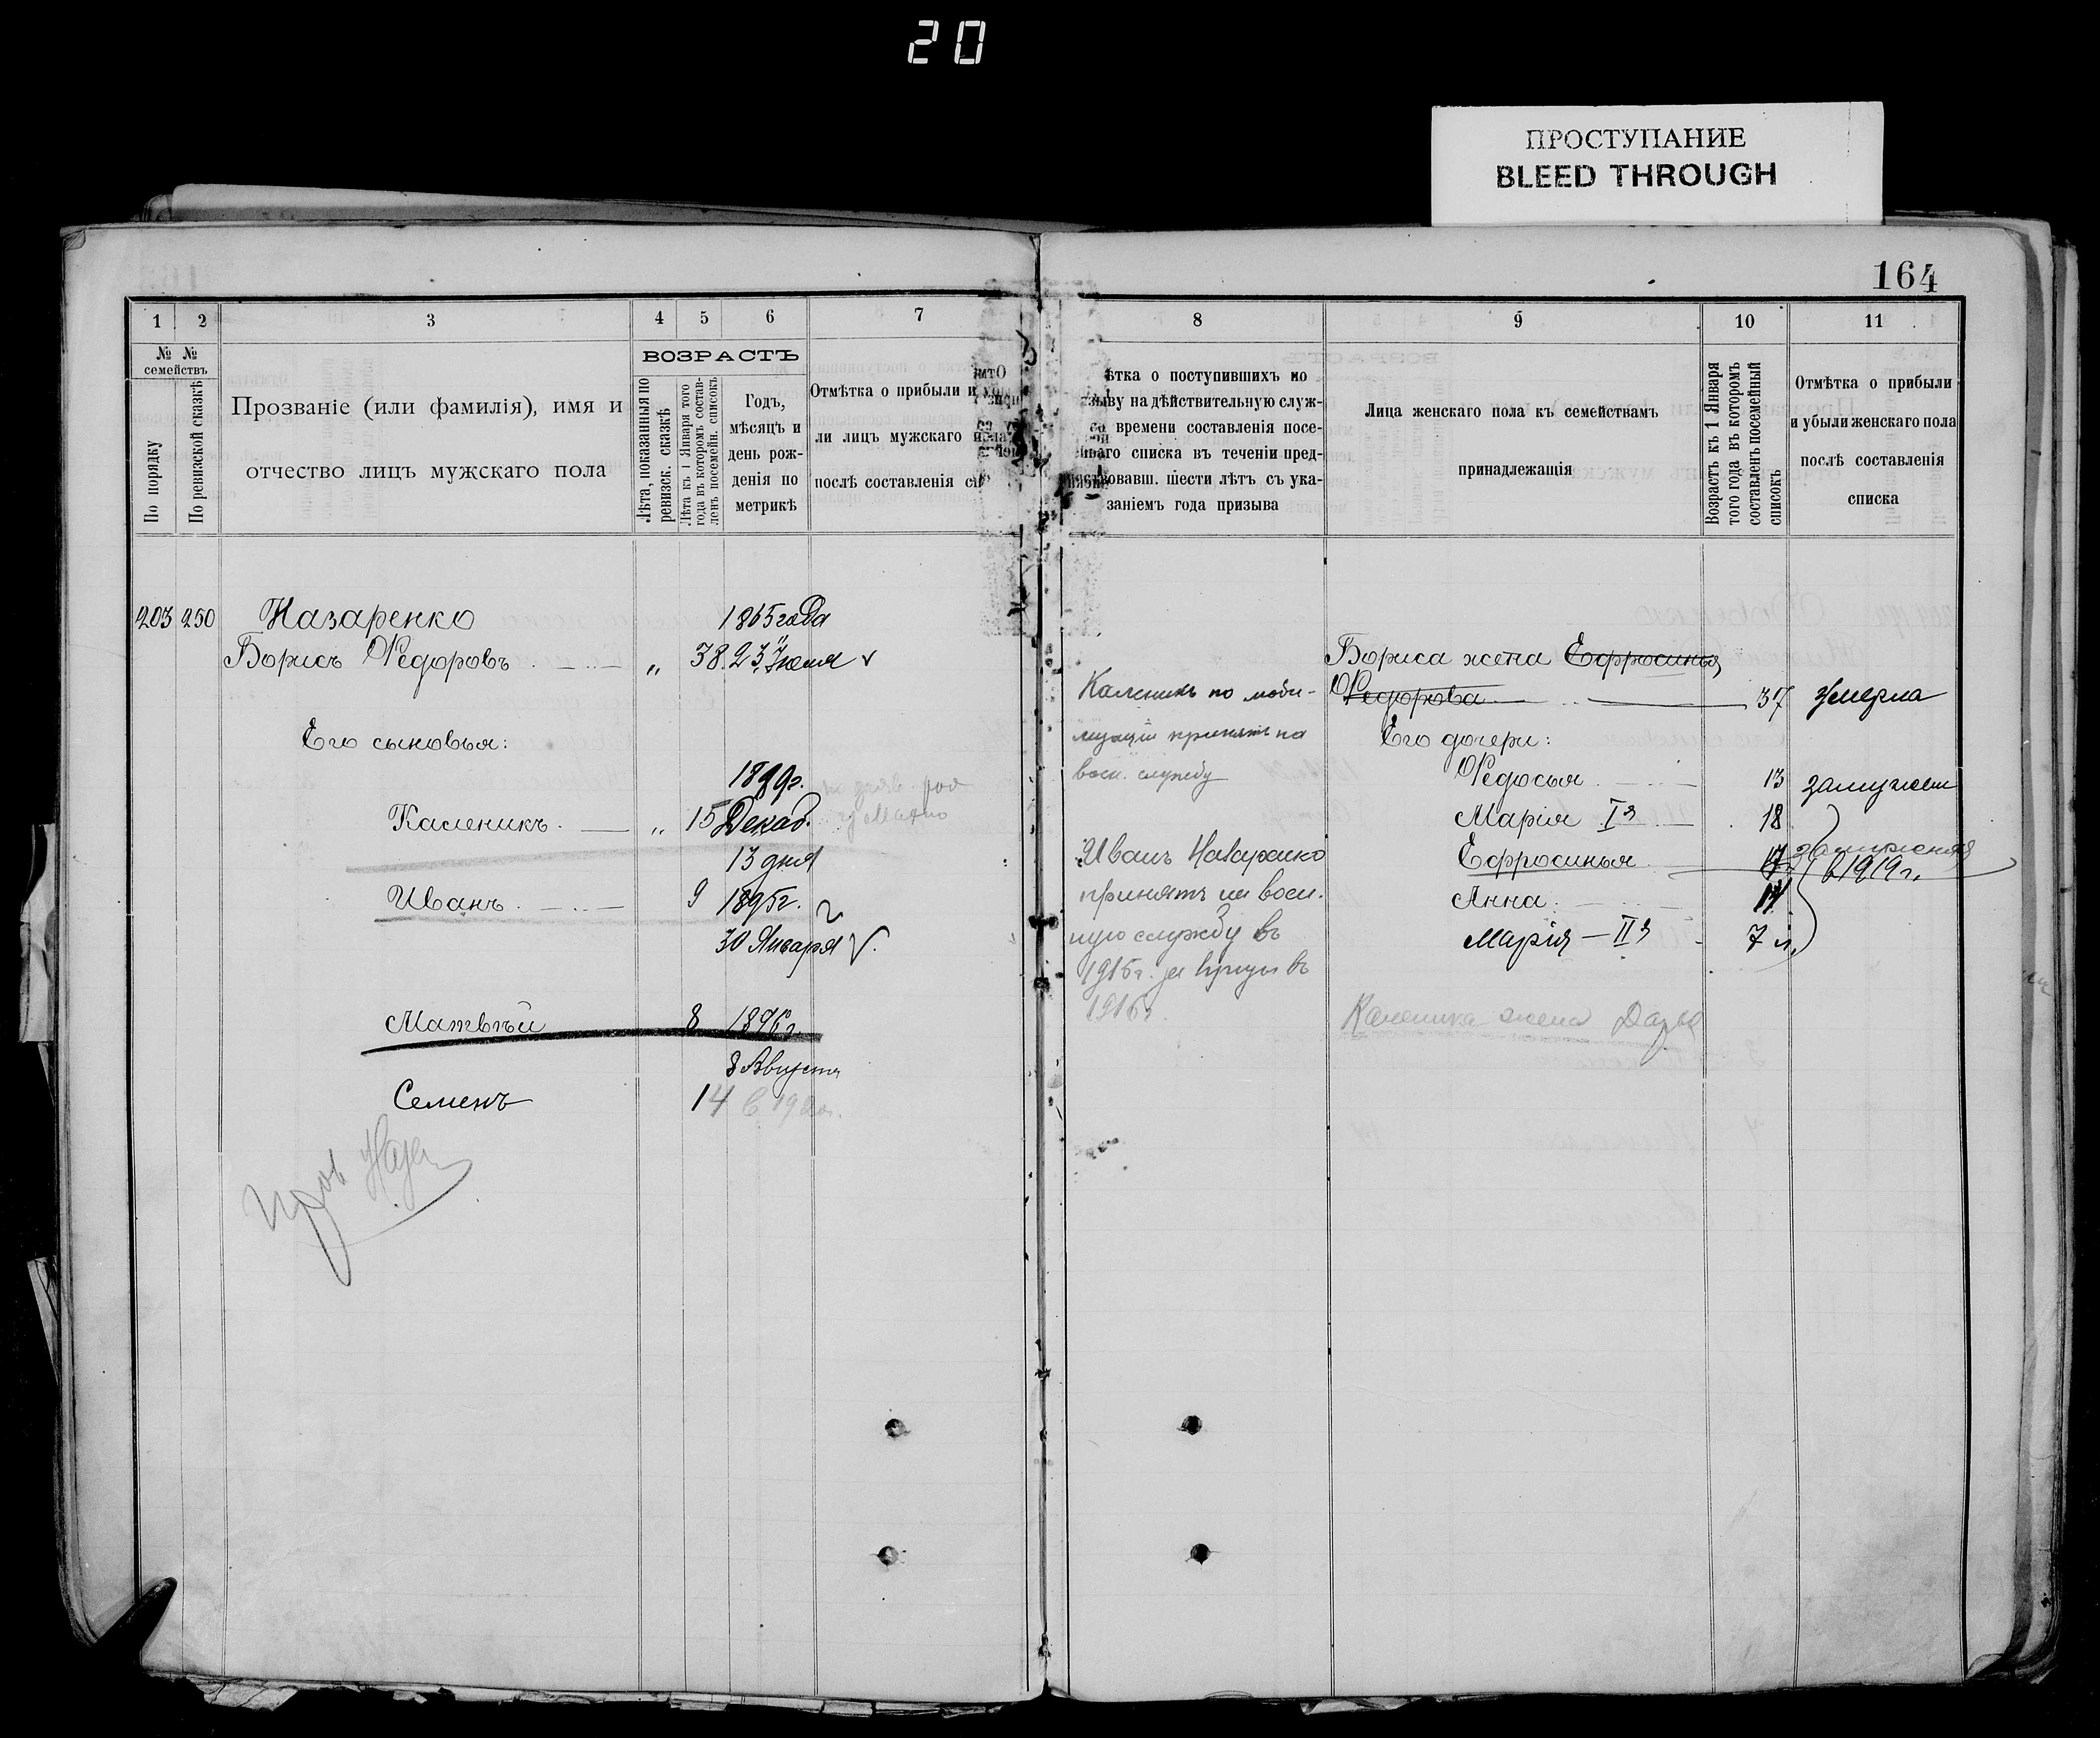 20
ПРОСТУПАНИЕ
BLEED THROUGH
164
1 2 3 4 5 6 7
№ № семействъ
По порядку
По ревизской сказкѣ
Прозваніе (или фамилія), имя и
отчество лицъ мужскаго пола
ВОЗРАСТЪ
Лѣта, показанныя по
ревизск. сказкѣ
Лѣта къ 1 Января того
года въ которомъ состав-
ленъ посемейн. списокъ
Годъ,
мѣсяцъ и
день рож-
денія по
метрикѣ
Отмѣтка о прибыли и
ли лицъ мужскаго
послѣ составленія
203 250 Назаренко 1865 года
Борисъ Ѳедоровъ „ 38 23 Іюля
Его сыновья:
1889г.
Каленикъ „ 15 Декаб.
13 дня
Иванъ 9 1895г.
30 Января
Матвѣй 8 1896г.
8 Августа
Семенъ 14 в 1920г.
8 9 10 11
ѣтка о поступившихъ по
зыву на дѣйствительную служ-
со времени составленія посе-
наго списка въ теченіи пред-
ствовавш. шести лѣтъ съ ука-
заніемъ года призыва
Лица женскаго пола къ семействамъ
принадлежащія
Возрастъ къ 1 Января
того года въ которомъ
составленъ посемейный
списокъ
Отмѣтка о прибыли
и убыли женскаго пола
послѣ составленія
списка
Каленикъ по моби-
лизаціи принятъ на
воен. службу
Иванъ Назаренко
принятъ на воен.
ную службу въ
1915г. за
1916г.
Бориса жена Ефросинья
Ѳедорова 37 умерла
Его дочери:
Ѳедосья 13 замужем
Марія I я 18
Ефросинья 17 замужняя
в 1919 г.
Анна 14
Марія — II я 7 л.
Каленика жена Дарья